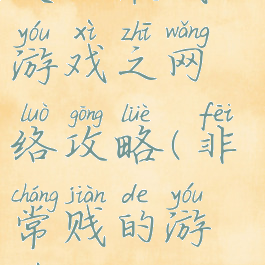 yóu xì zhī wǎng
游戏之网
luò gōng lüè fēi
络攻略(非
cháng jiàn de yóu
常贱的游